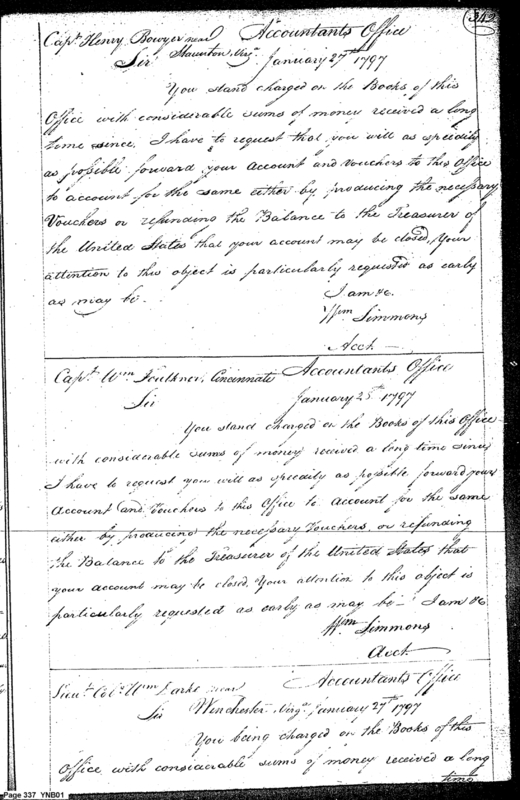 342
Capt. Henry Bowyer near Accountants Office
Sir Staunton, Virga. January 27th 1797
You stand charged on the Books of this
Office with considerable sums of money received a long
time since. I have to request that you will as speedily
as possible forward your account and vouchers to this Office
to account for the same either by producing the necessary
Vouchers or refunding the Balance to the Treasurer of
the United States that your account may be closed, Your
attention to this object is particularly requested as early
as may be.
I am &c.
Wm Simmons
Acct
Capt. Wm Faulkner, Cincinnati Accountants Office
Sir January 28th 1797
You stand charged on the Books of this Office
with considerable sums of money received a long time since
I have to request you will as speedily as possible forward your
Account and Vouchers to this Office to Account for the same
either by producing the necessary Vouchers, or refunding
the Balance to the Treasurer of the United States that
your account may be closed, Your attention to this object is
particularly requested as early as may be I am &c
Wm Simmons
Acct.
Lieut. Colo. Wm Darke near Accountants Office
Sir Winchester, Virga. January 27th 1797
You being charged on the Books of this
Office with considerable sums of money received a long
time
Page 337 YNB01